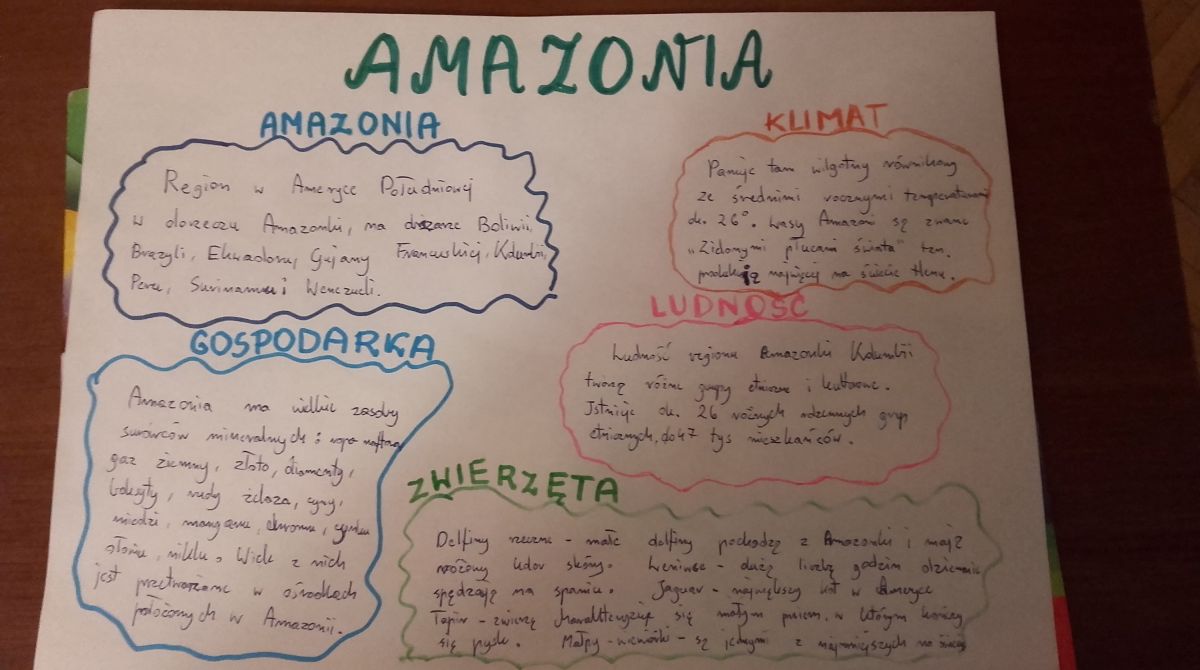 AMAZONIA
AMAZONIA
Region w Ameryce Południowej
w dorzeczu Amazonki, na obszarze Boliwii,
Brazyli, Ekwadoru, Gujany Francuskiej, Kolumbii,
Peru, Surinamu i Wenezueli.
KLIMAT
Panuje tam wilgotny równikowy
ze średnimi rocznymi temperaturami
ok. 26°. Lasy Amazoni są zwane
„Zielonymi płucami świata" tzn.
produkują najwięcej na świecie tlenu.
LUDNOŚĆ
Ludność regionu Amazonki Kolumbii
tworzą różne grupy etniczne i kulturowe.
Istnieje ok. 26 różnych rdzennych grup
etnicznych, do 47 tys mieszkańców.
GOSPODARKA
Amazonia ma wielkie zasoby
surowców mineralnych: ropa naftowa
gaz ziemny, złoto, diamenty,
boksyty, rudy żelaza, cyny,
miedzi, manganu, chromu, cynku
ołowiu, niklu. Wiele z nich
jest przetwarzane w ośrodkach
położonych w Amazonii.
ZWIERZĘTA
Delfiny rzeczne - małe delfiny pochodzą z Amazonki i mają
różowy kolor skóry. Leniwce - dużą liczbę godzin dziennie
spędzają na spaniu. Jaguar - największy kot w Ameryce
Tapir - zwierzę charakteryzuje się małym w którym kończy
się pysk. Małpy - wiewiórki - są jednymi z najmniejszych na świecie